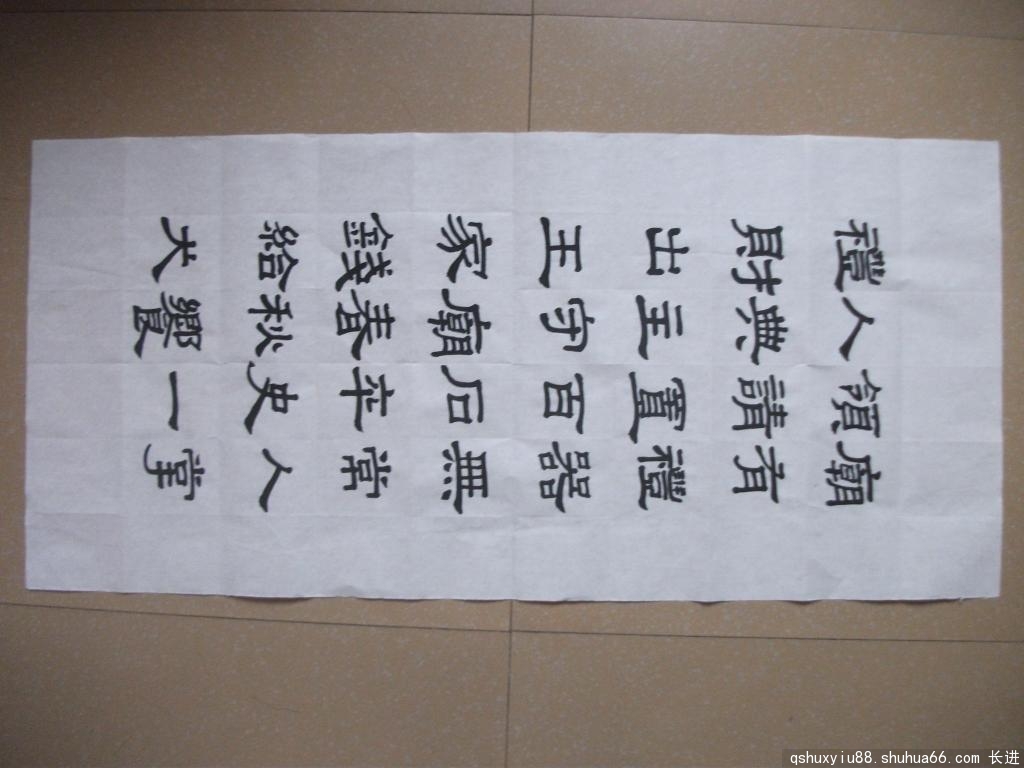 廟有禮器無常人掌
領請置百石卒史一
人典主守廟春秋饗
禮財出王家錢給犬
qshuxyiu88.shuhua66.com 长进